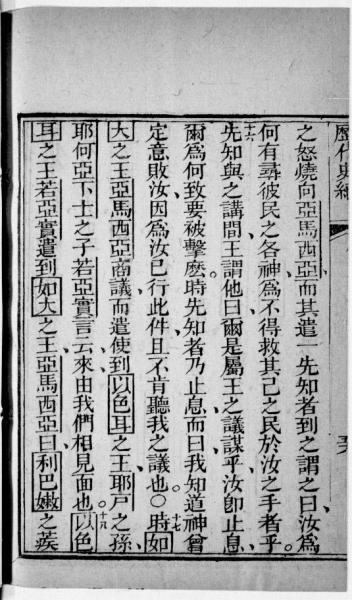 歷代史紀
之怒燒向亞馬西亞而其遣一先知者到之謂之曰汝爲
何有尋彼民之各神爲不得救其己之民於汝之手者乎。
十六先知與之講間王謂他曰爾是屬王之議謀乎汝卽止息、
爾爲何致要被擊麽時先知者乃止息而曰我知道神曾
定意敗汝因爲汝已行此件且不肯聽我之議也。○十七時如
大之王亞馬西亞商議而遣使到以色耳之王耶戸之孫、
耶何亞下士之子若亞實言云來由我們相見面也。十八以色
耳之王若亞實遣到如大之王亞馬西亞曰利巴嫩之蒺